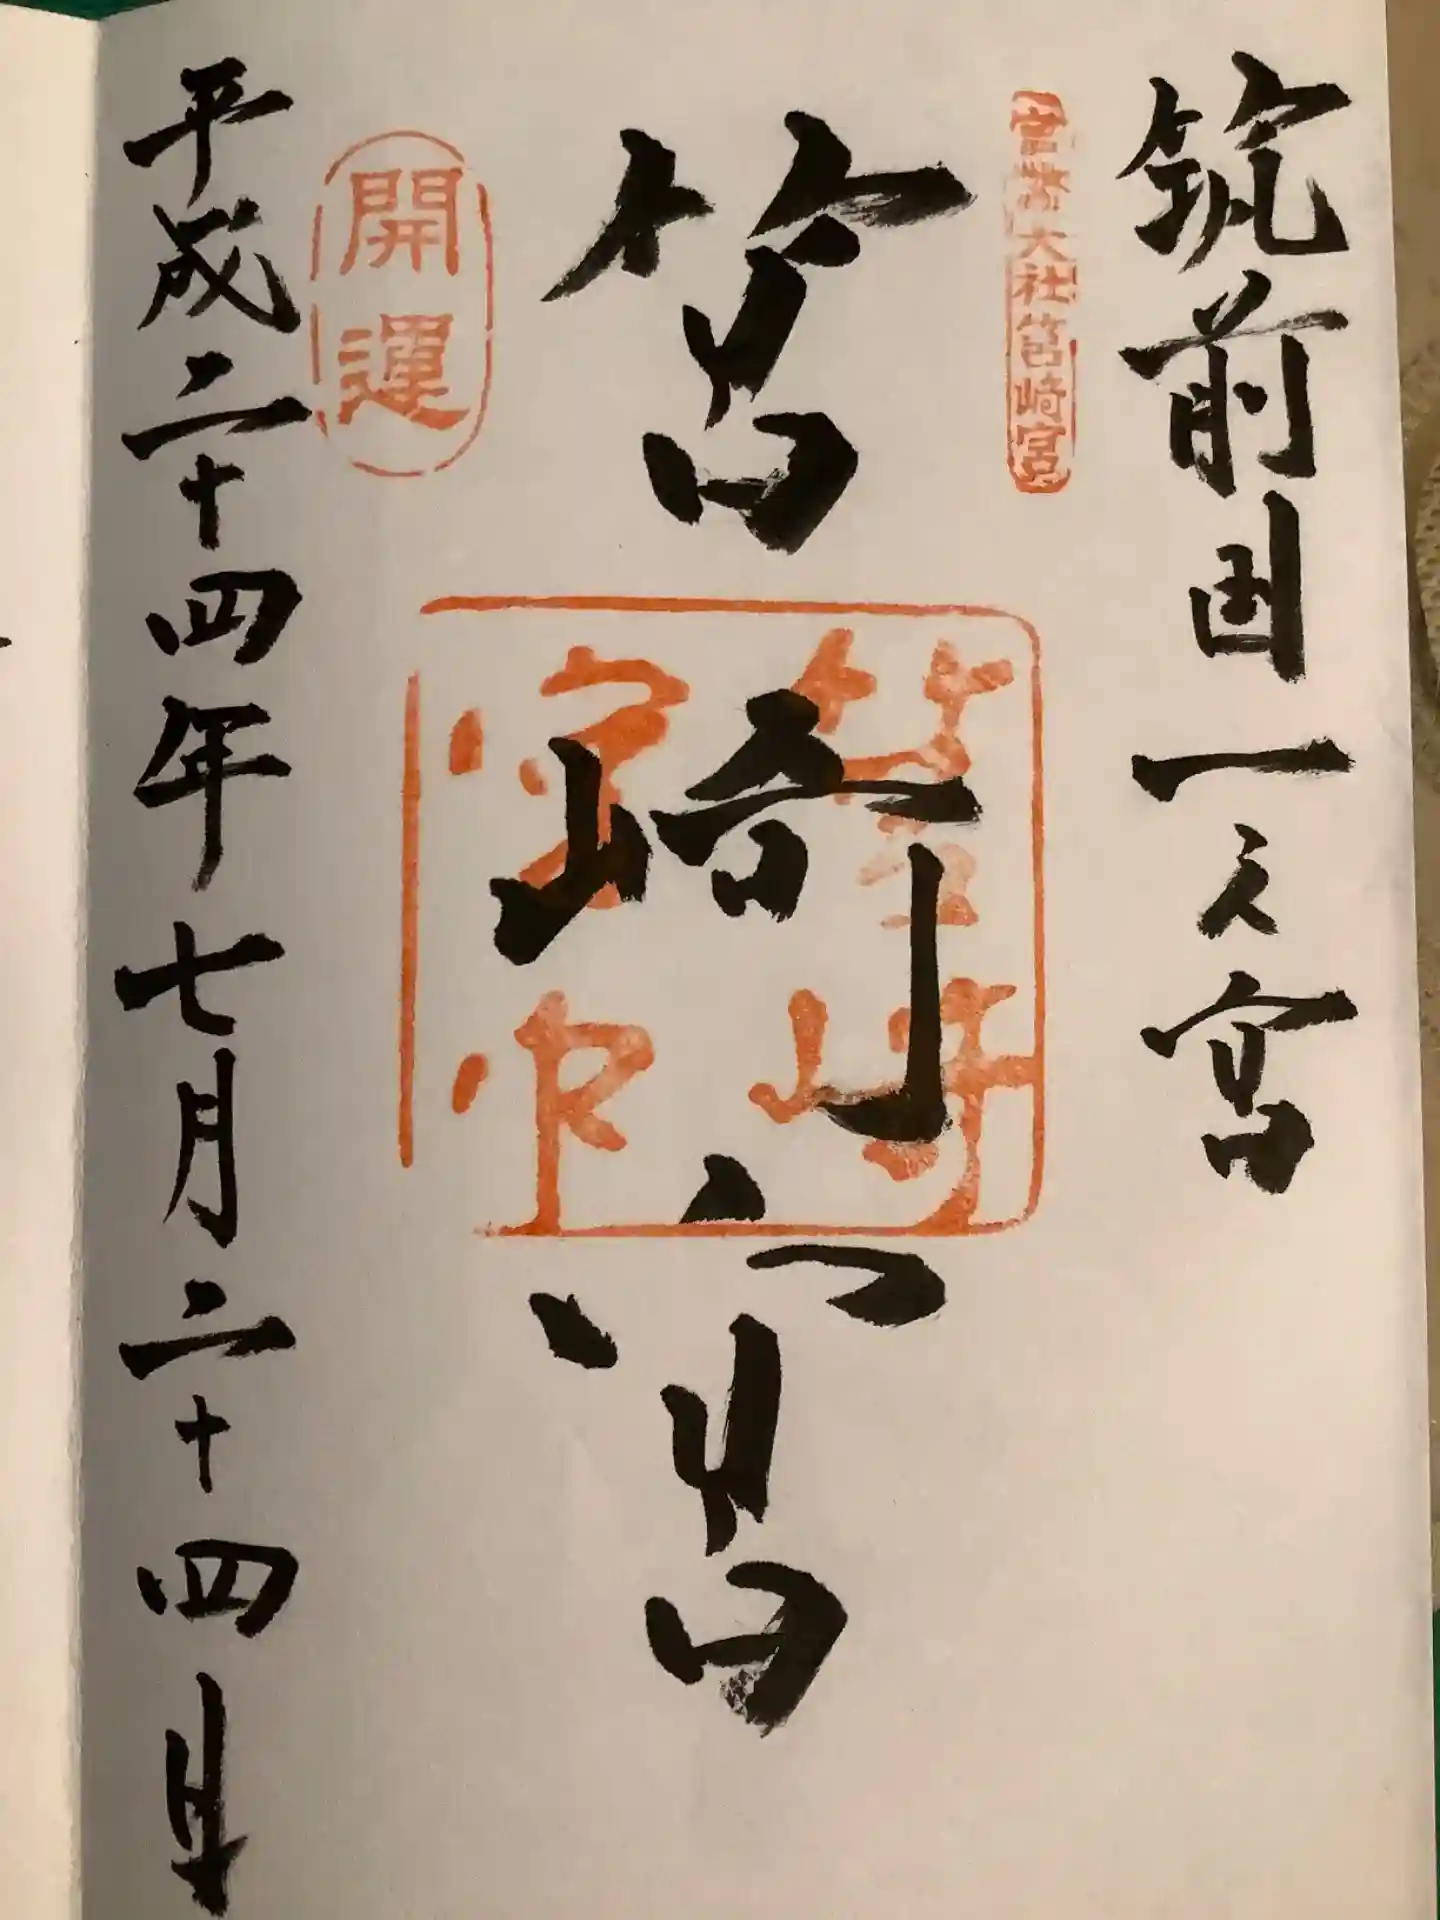 筑前国一之宮
官幣大社筥崎宮
筥崎宮
筥崎宮印
開運
平成二十四年七月二十四日